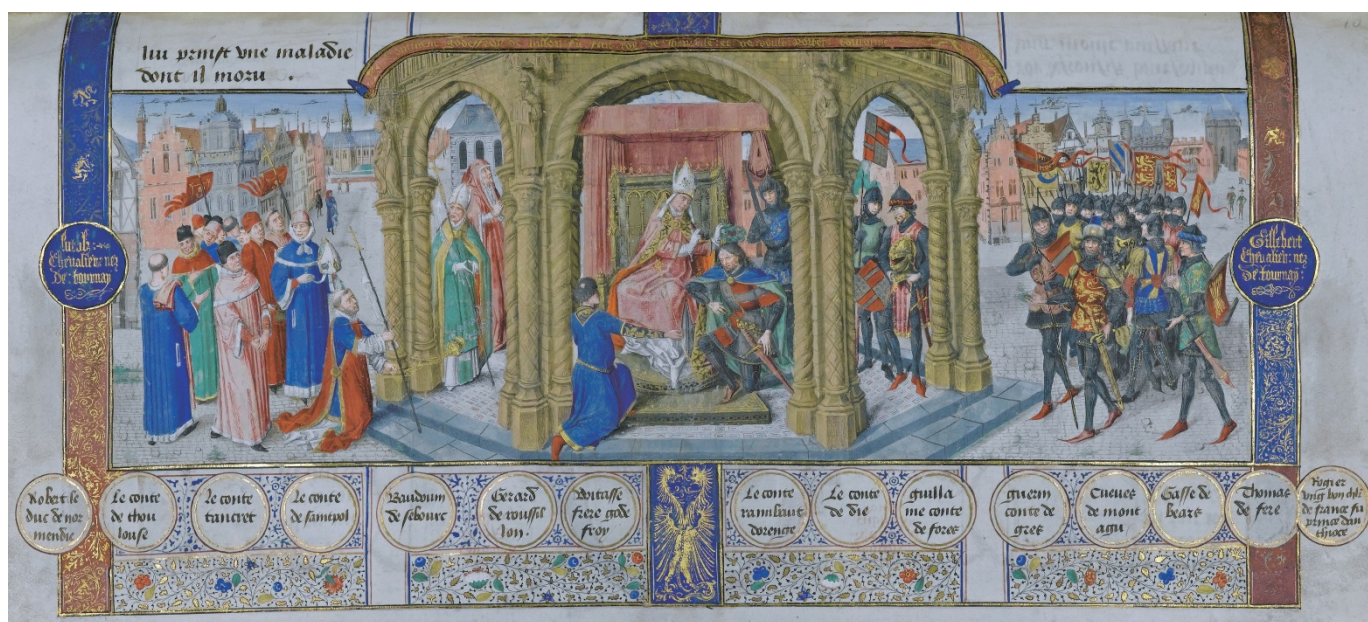 luy prinst vne maladie
dont il moru .
Chevalier nez
De tournay
Gillebert
Chevalier nez
De tournay
Robert le
duc de nor
mendie
Le conte
de thou
louse
Le conte
tancret
Le conte
de saincpol
Bauduin
de sebourc
Gerard
de roussil
lon.
Wistasse
frere gode
froy
Le conte
rambaut
dorenge
Le conte
De die
guilla
me conte
de fores
guerin
conte de
gres
Cueues
de mont
agu
Gasse de
bears
Thomas
de fere
Rogier
de france fu
prince dan
thioce